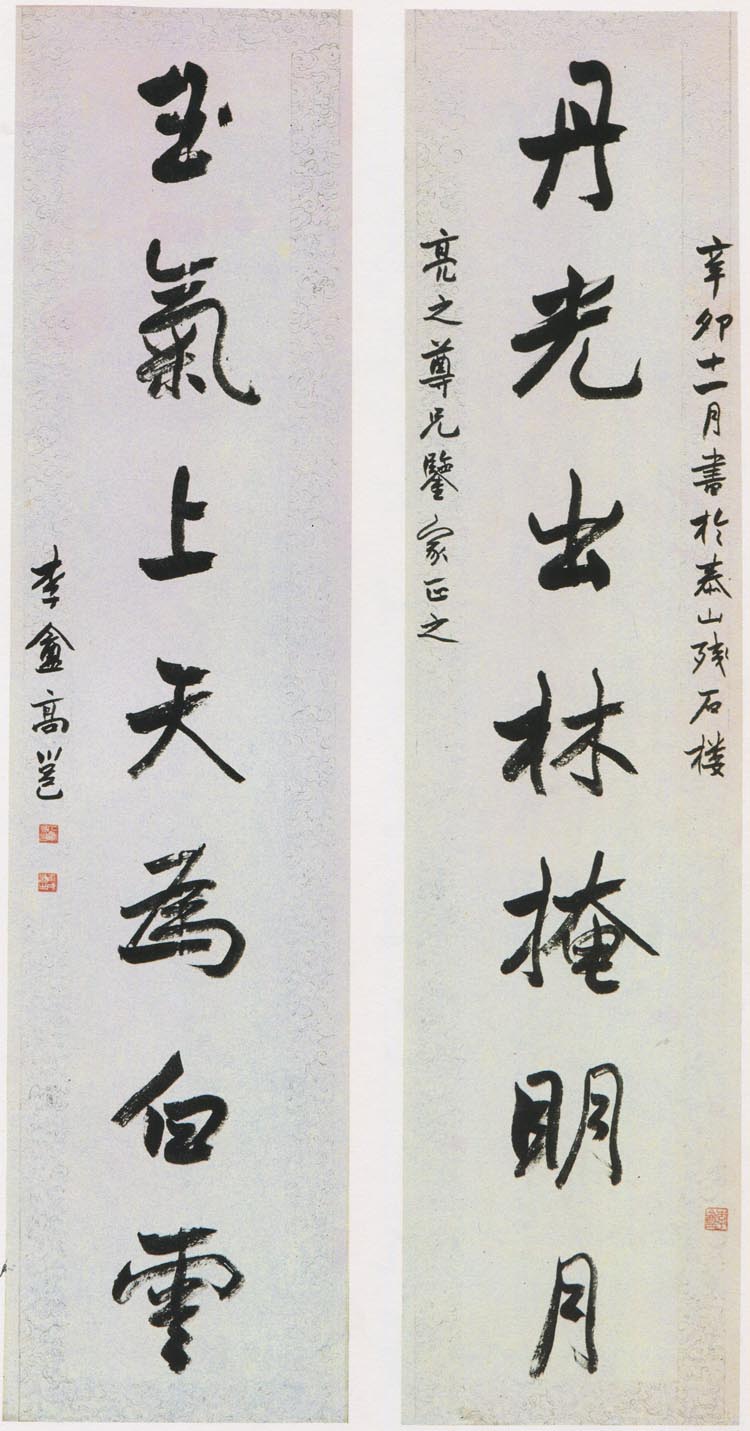 辛卯十一月書於泰山残石楼
丹光出林掩明月
亮之尊兄鑒家正之
玉氣上天為白雲
李盦高邕